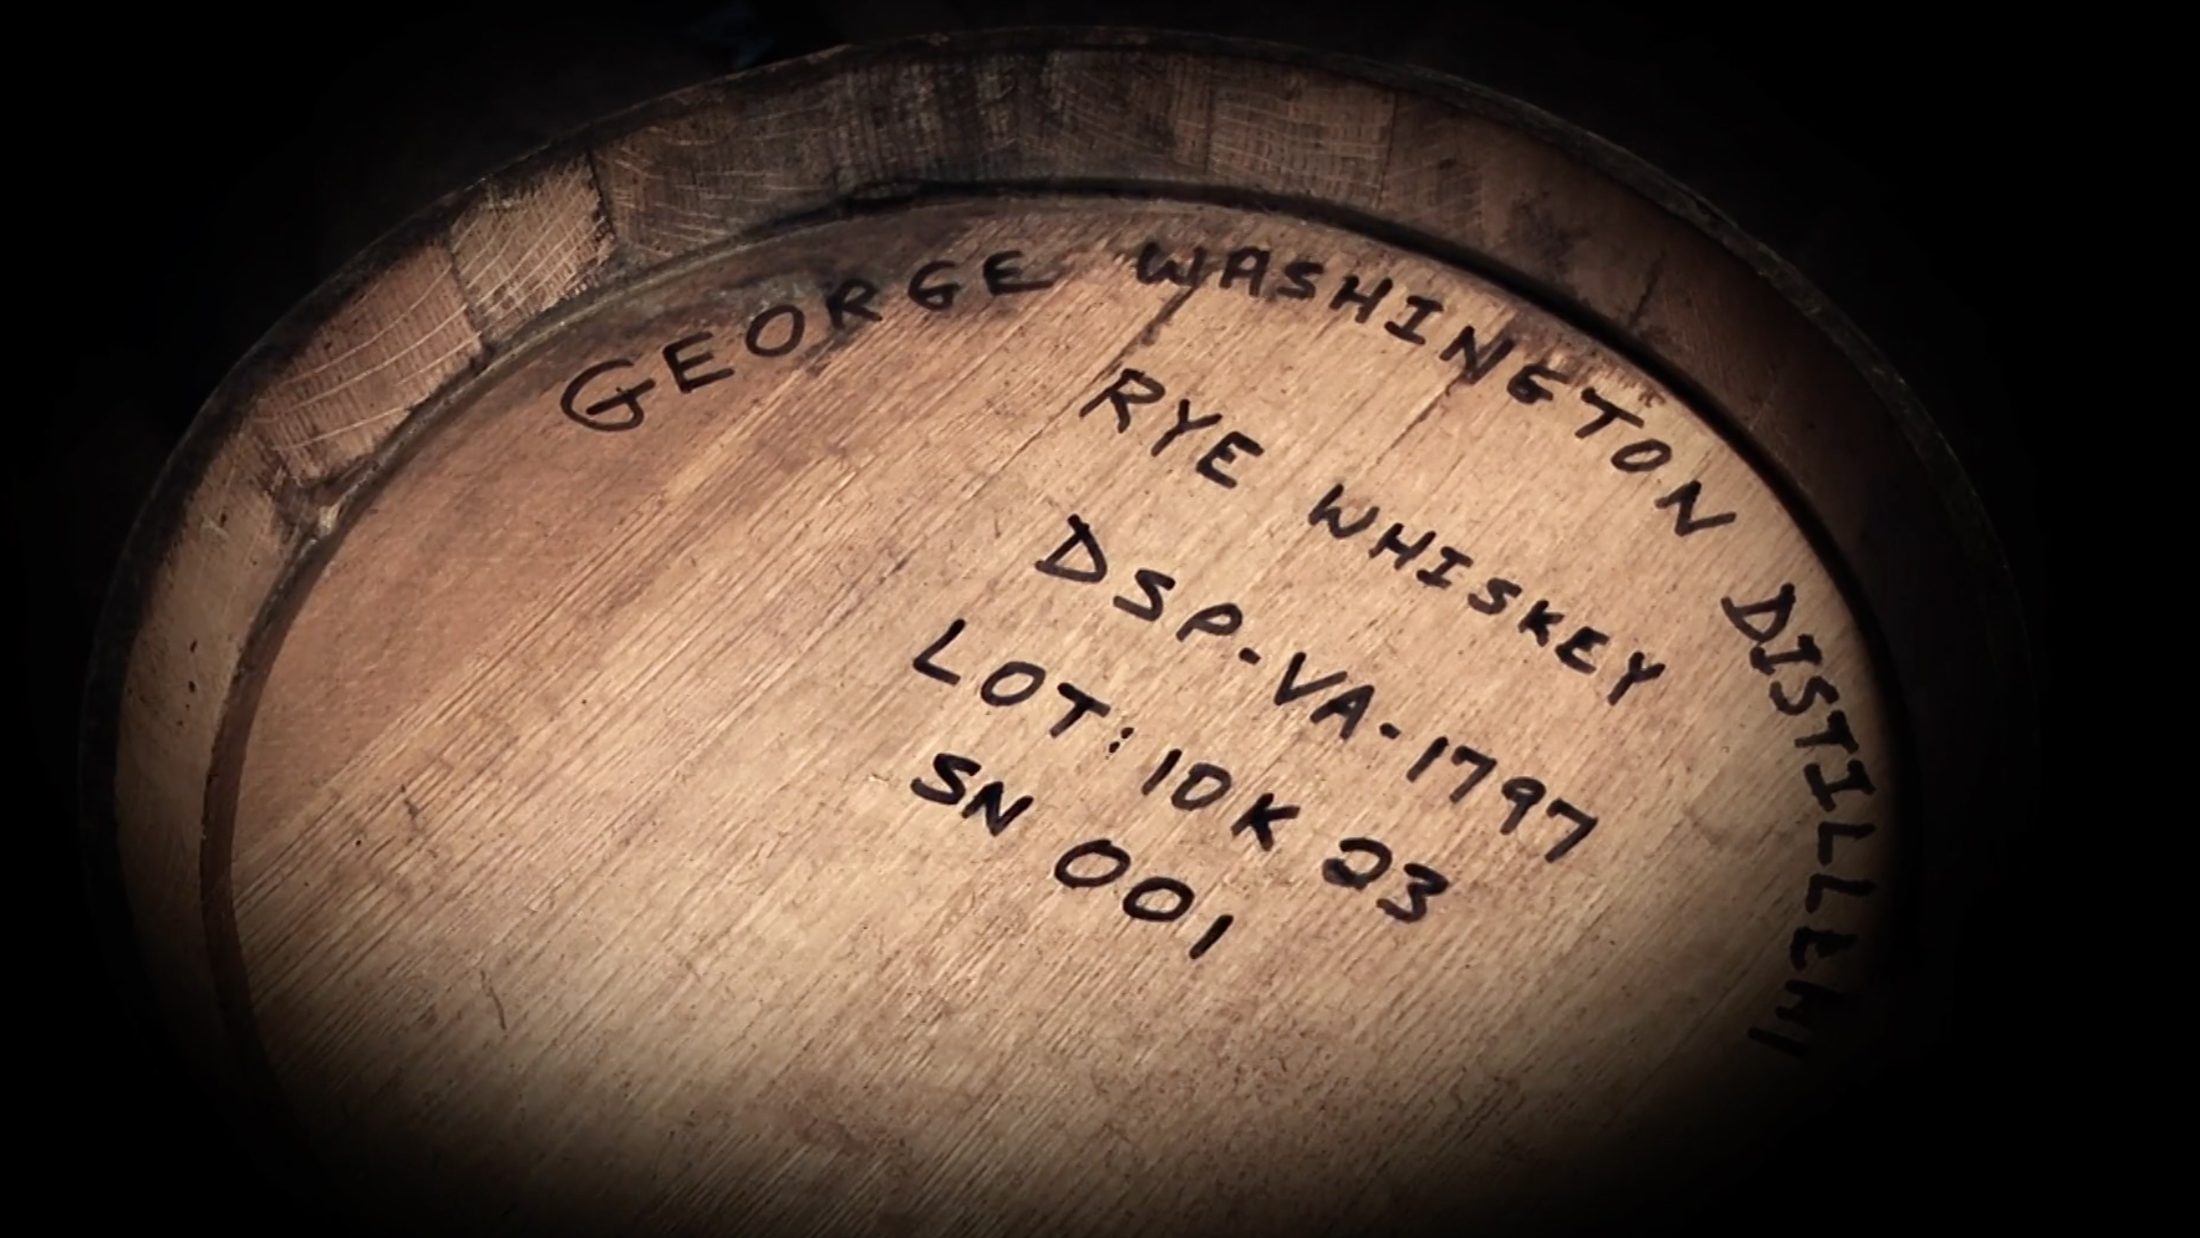 GEORGE WASHINGTON DISTILLERY
RYE WHISKEY
DSP-VA-1797
LOT: 10K 23
SN 001